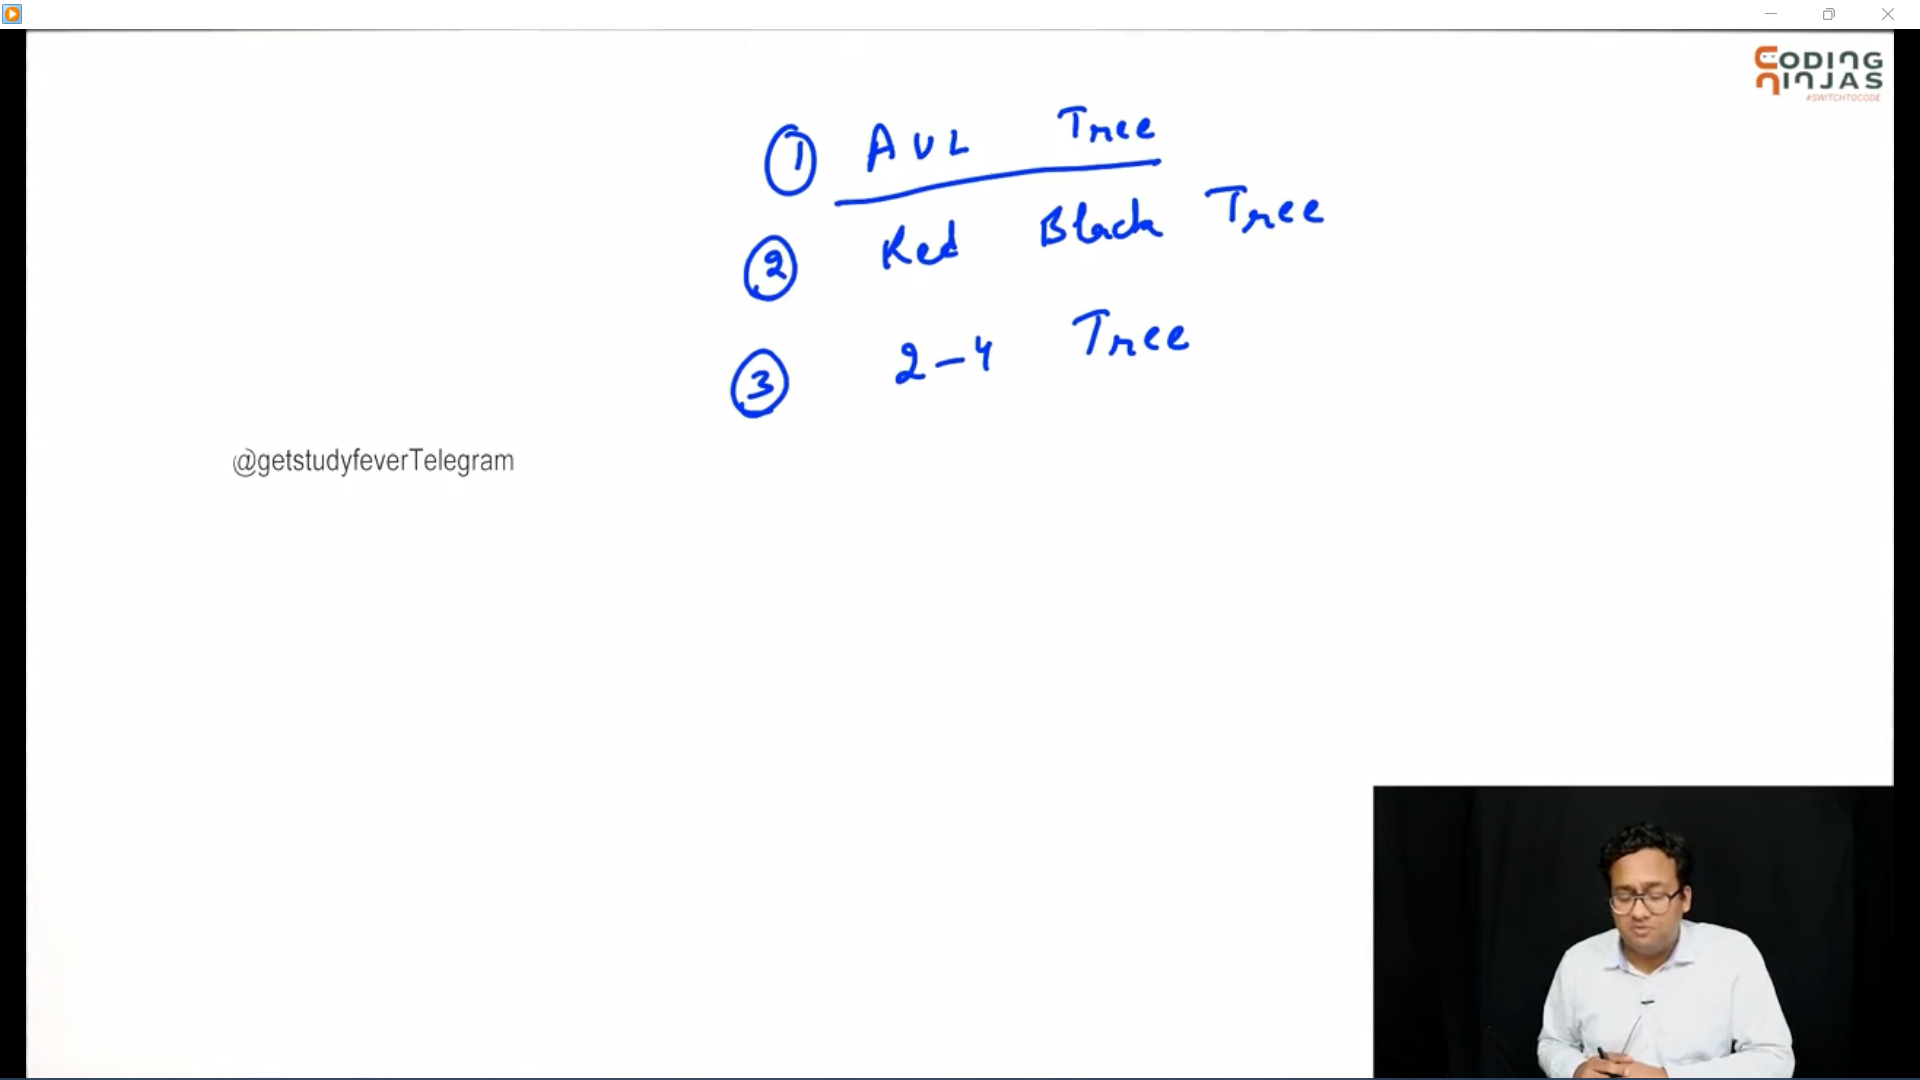 CODING
NINJAS
#SWITCHTOCODE
1 AVL Tree
2 Red Black Tree
3 2-4 Tree
@getstudyfeverTelegram